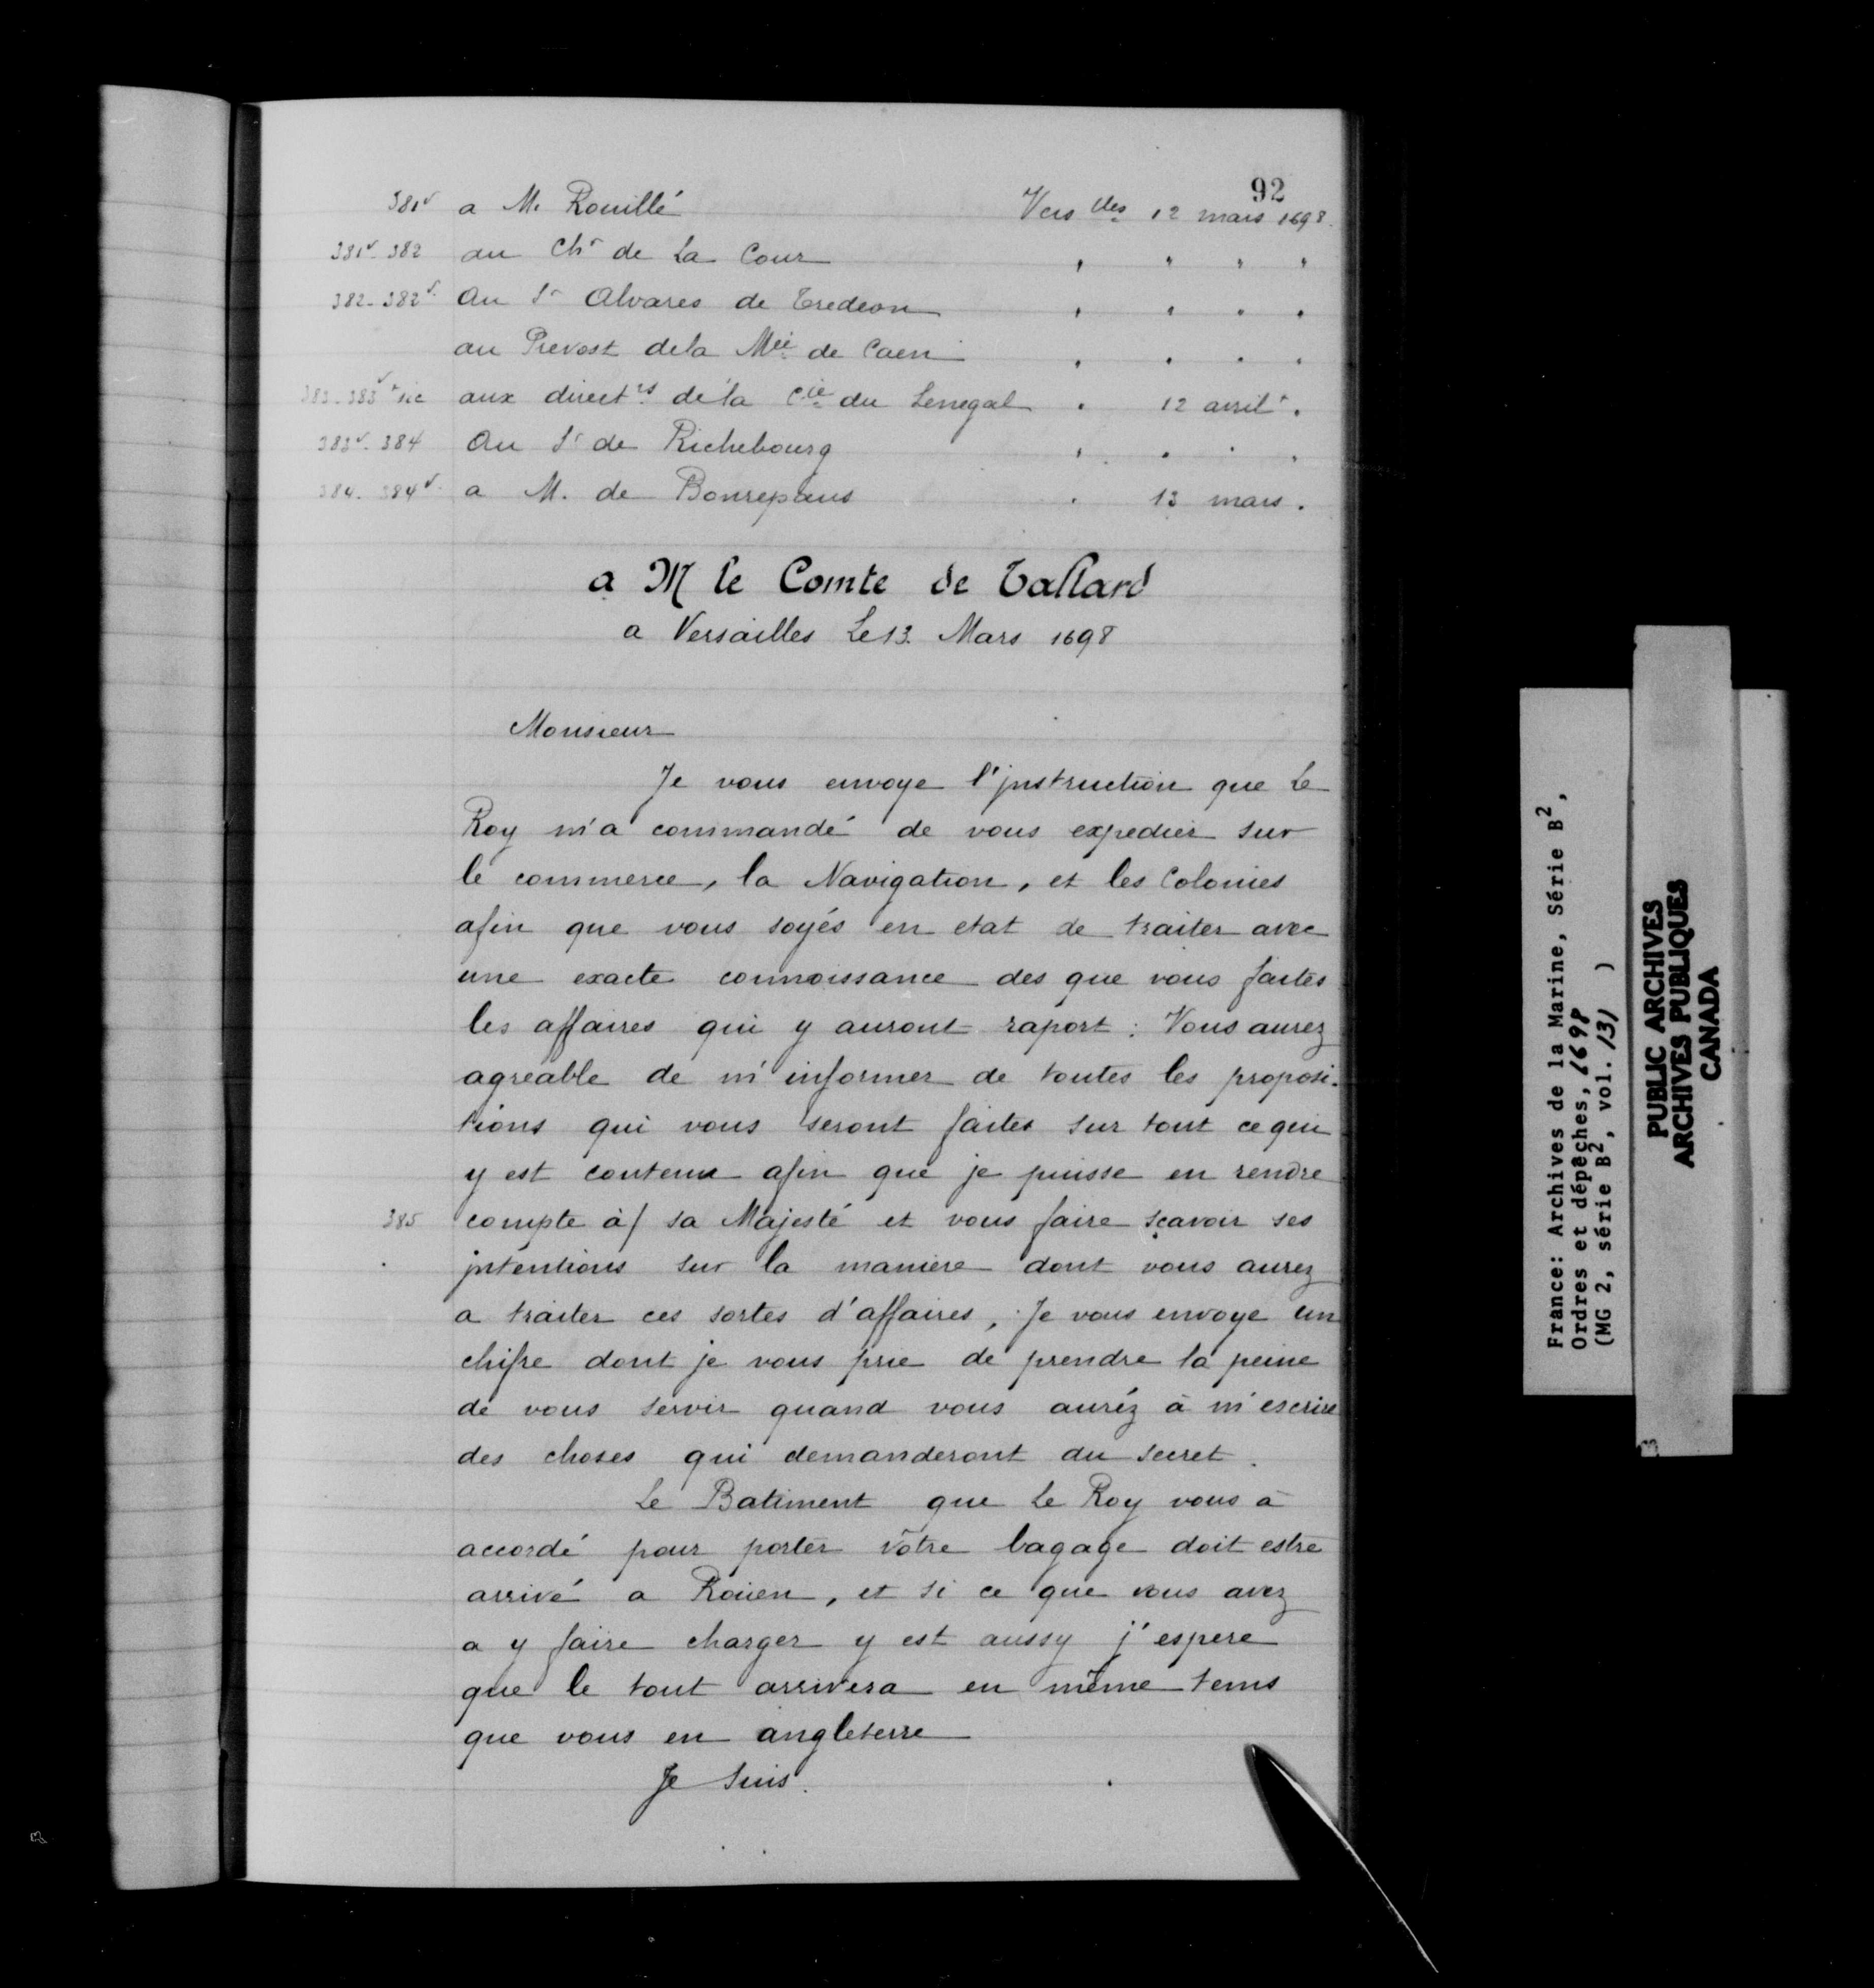 92
381v a M. Rouillé Vers lles 12 mars 1698.
381v-382 au Chr de La Cour " " " "
382-382v. Au Sr Alvares de Tredeon " " " "
au Prevost dela Mée de Caen " " " "
383-383v sic aux directrs de la Cie du Senegal " 12 avril ".
383v-384 Au Sr de Richebourg " " " "
384-384v. a M. de Bonrepaus " 13 mars.
a M le Comte de Tallard
a Versailles Le 13 Mars 1698
Monsieur
Je vous envoye l'jnstruction que Le
Roy m'a commandé de vous expedier sur
le commerce, la Navigation, et les Colonies
afin que vous soyés en etat de traiter avec
une exacte connoissance des que vous faites
les affaires qui y auront raport : Vous aurez
agreable de m'informer de toutes les proposi-
tions qui vous seront faites sur tout ce qui
y est contenu afin que je puisse en rendre
385 compte à/ sa Majesté et vous faire sçavoir ses
jntentions sur la maniere dont vous aurez
a traiter ces sortes d'affaires, Je vous envoye un
chifre dont je vous prie de prendre la peine
de vous servir quand vous auréz à m'escrire
des choses qui demanderont du secret.
Le Batiment que Le Roy vous à
accordé pour porter vôtre bagage doit estre
arrivé a Roüen, et si ce que vous avez
a y faire charger y est aussy j'espere
que le tout arrivera en même tems
que vous en angleterre
Je suis.
France: Archives de la Marine, Série B2,
Ordres et dépêches, 1698
(MG 2, série B2, vol. 131 )
PUBLIC ARCHIVES
ARCHIVES PUBLIQUES
CANADA